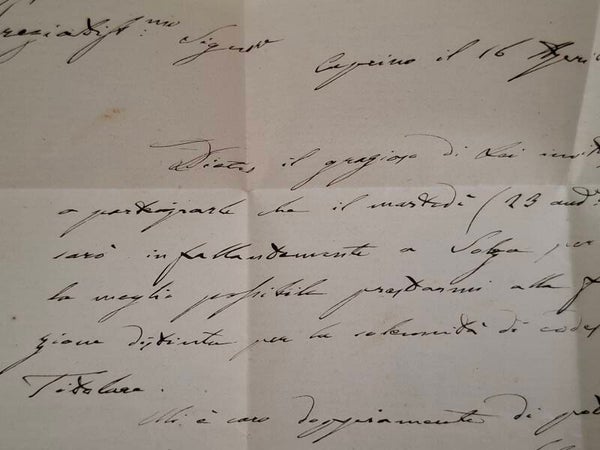 Pregiatiss.mo Signor
Caprino il 16 April
Dietro il grazioso di Lei invit
a parteciparle che il martedì (23 and.
sarò infallantemente a Solza per
la meglio possibile prestarmi alla f
zione distinta per la solennità di codes
Titolare.
Mi è caro doppiamente di pot